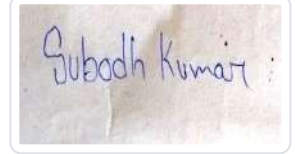 Subodh Kumar